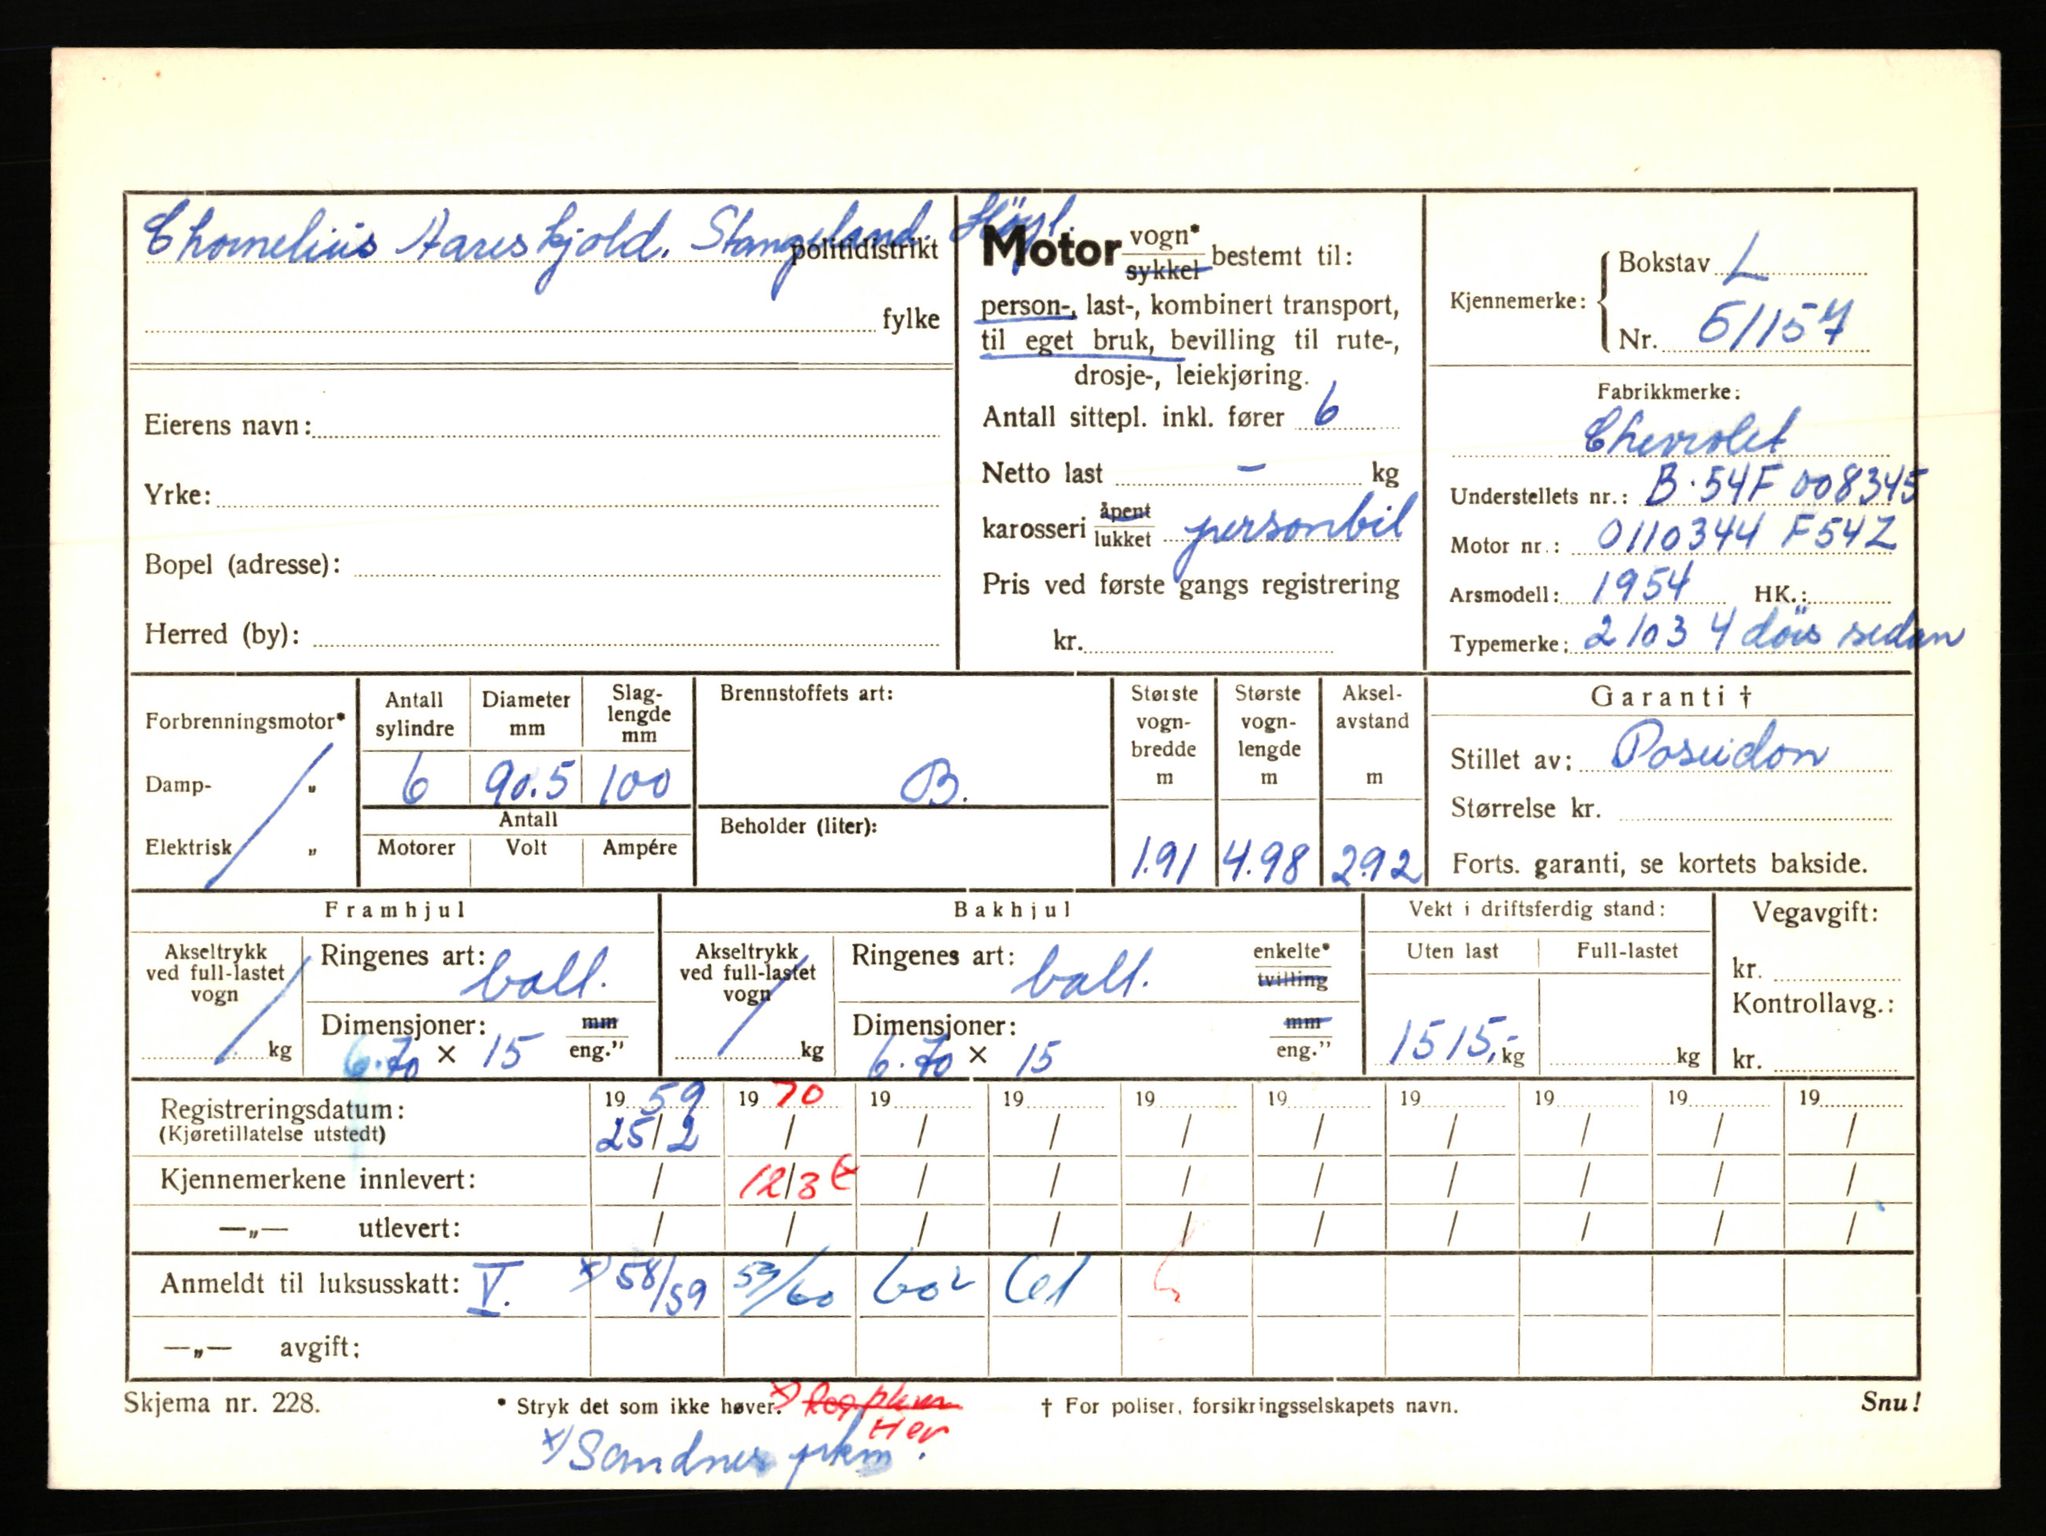 Chornelius Aareskjold. Stangeland Höyl.
politidistrikt
fylke
Eierens navn:
Yrke:
Bopel (adresse):
Herred (by):
Motor vogn* sykkel bestemt til:
person-, last-, kombinert transport,
til eget bruk, bevilling til rute-,
drosje-, leiekjøring.
Antall sittepl. inkl. fører 6
Netto last – kg
karosseri åpent lukket personbil
Pris ved første gangs registrering
kr.
Kjennemerke: Bokstav L
Nr. 51157
Fabrikkmerke:
Chevrolet
Understellets nr.: B.54F 008345
Motor nr.: 0110344 F54Z
Årsmodell: 1954 HK.:
Typemerke: 2103 4 dörs sedan
Forbrenningsmotor*
Damp- „
Elektrisk „
Antall sylindre Diameter mm Slaglengde mm
6 90.5 100
Antall
Motorer Volt Ampére
Brennstoffets art:
B.
Beholder (liter):
Største vognbredde m Største vognlengde m Akselavstand m
1.91 4.98 2.92
Garanti †
Stillet av: Poseidon
Størrelse kr.
Forts. garanti, se kortets bakside.
Framhjul
Akseltrykk ved full-lastet vogn kg
Ringenes art: ball.
Dimensjoner: mm
6.70 × 15 eng.”
Bakhjul
Akseltrykk ved full-lastet vogn kg
Ringenes art: ball. enkelte* tvilling
Dimensjoner: mm
6.70 × 15 eng.”
Vekt i driftsferdig stand:
Uten last Full-lastet
1515,- kg kg
Vegavgift:
kr.
Kontrollavg.:
kr.
Registreringsdatum: 19 59 19 70 19 19 19 19 19 19 19 19
(Kjøretillatelse utstedt) 25/2 / / / / / / / / /
Kjennemerkene innlevert: / 12/3 / / / / / / / /
—„— utlevert: / / / / / / / / / /
Anmeldt til luksusskatt: V. x) 58/59 59/60 60² 61
—„— avgift:
Skjema nr. 228. * Stryk det som ikke høver. x) Reg. pkm † For poliser, forsikringsselskapets navn. Snu!
Her
x) Sandnes pkm.